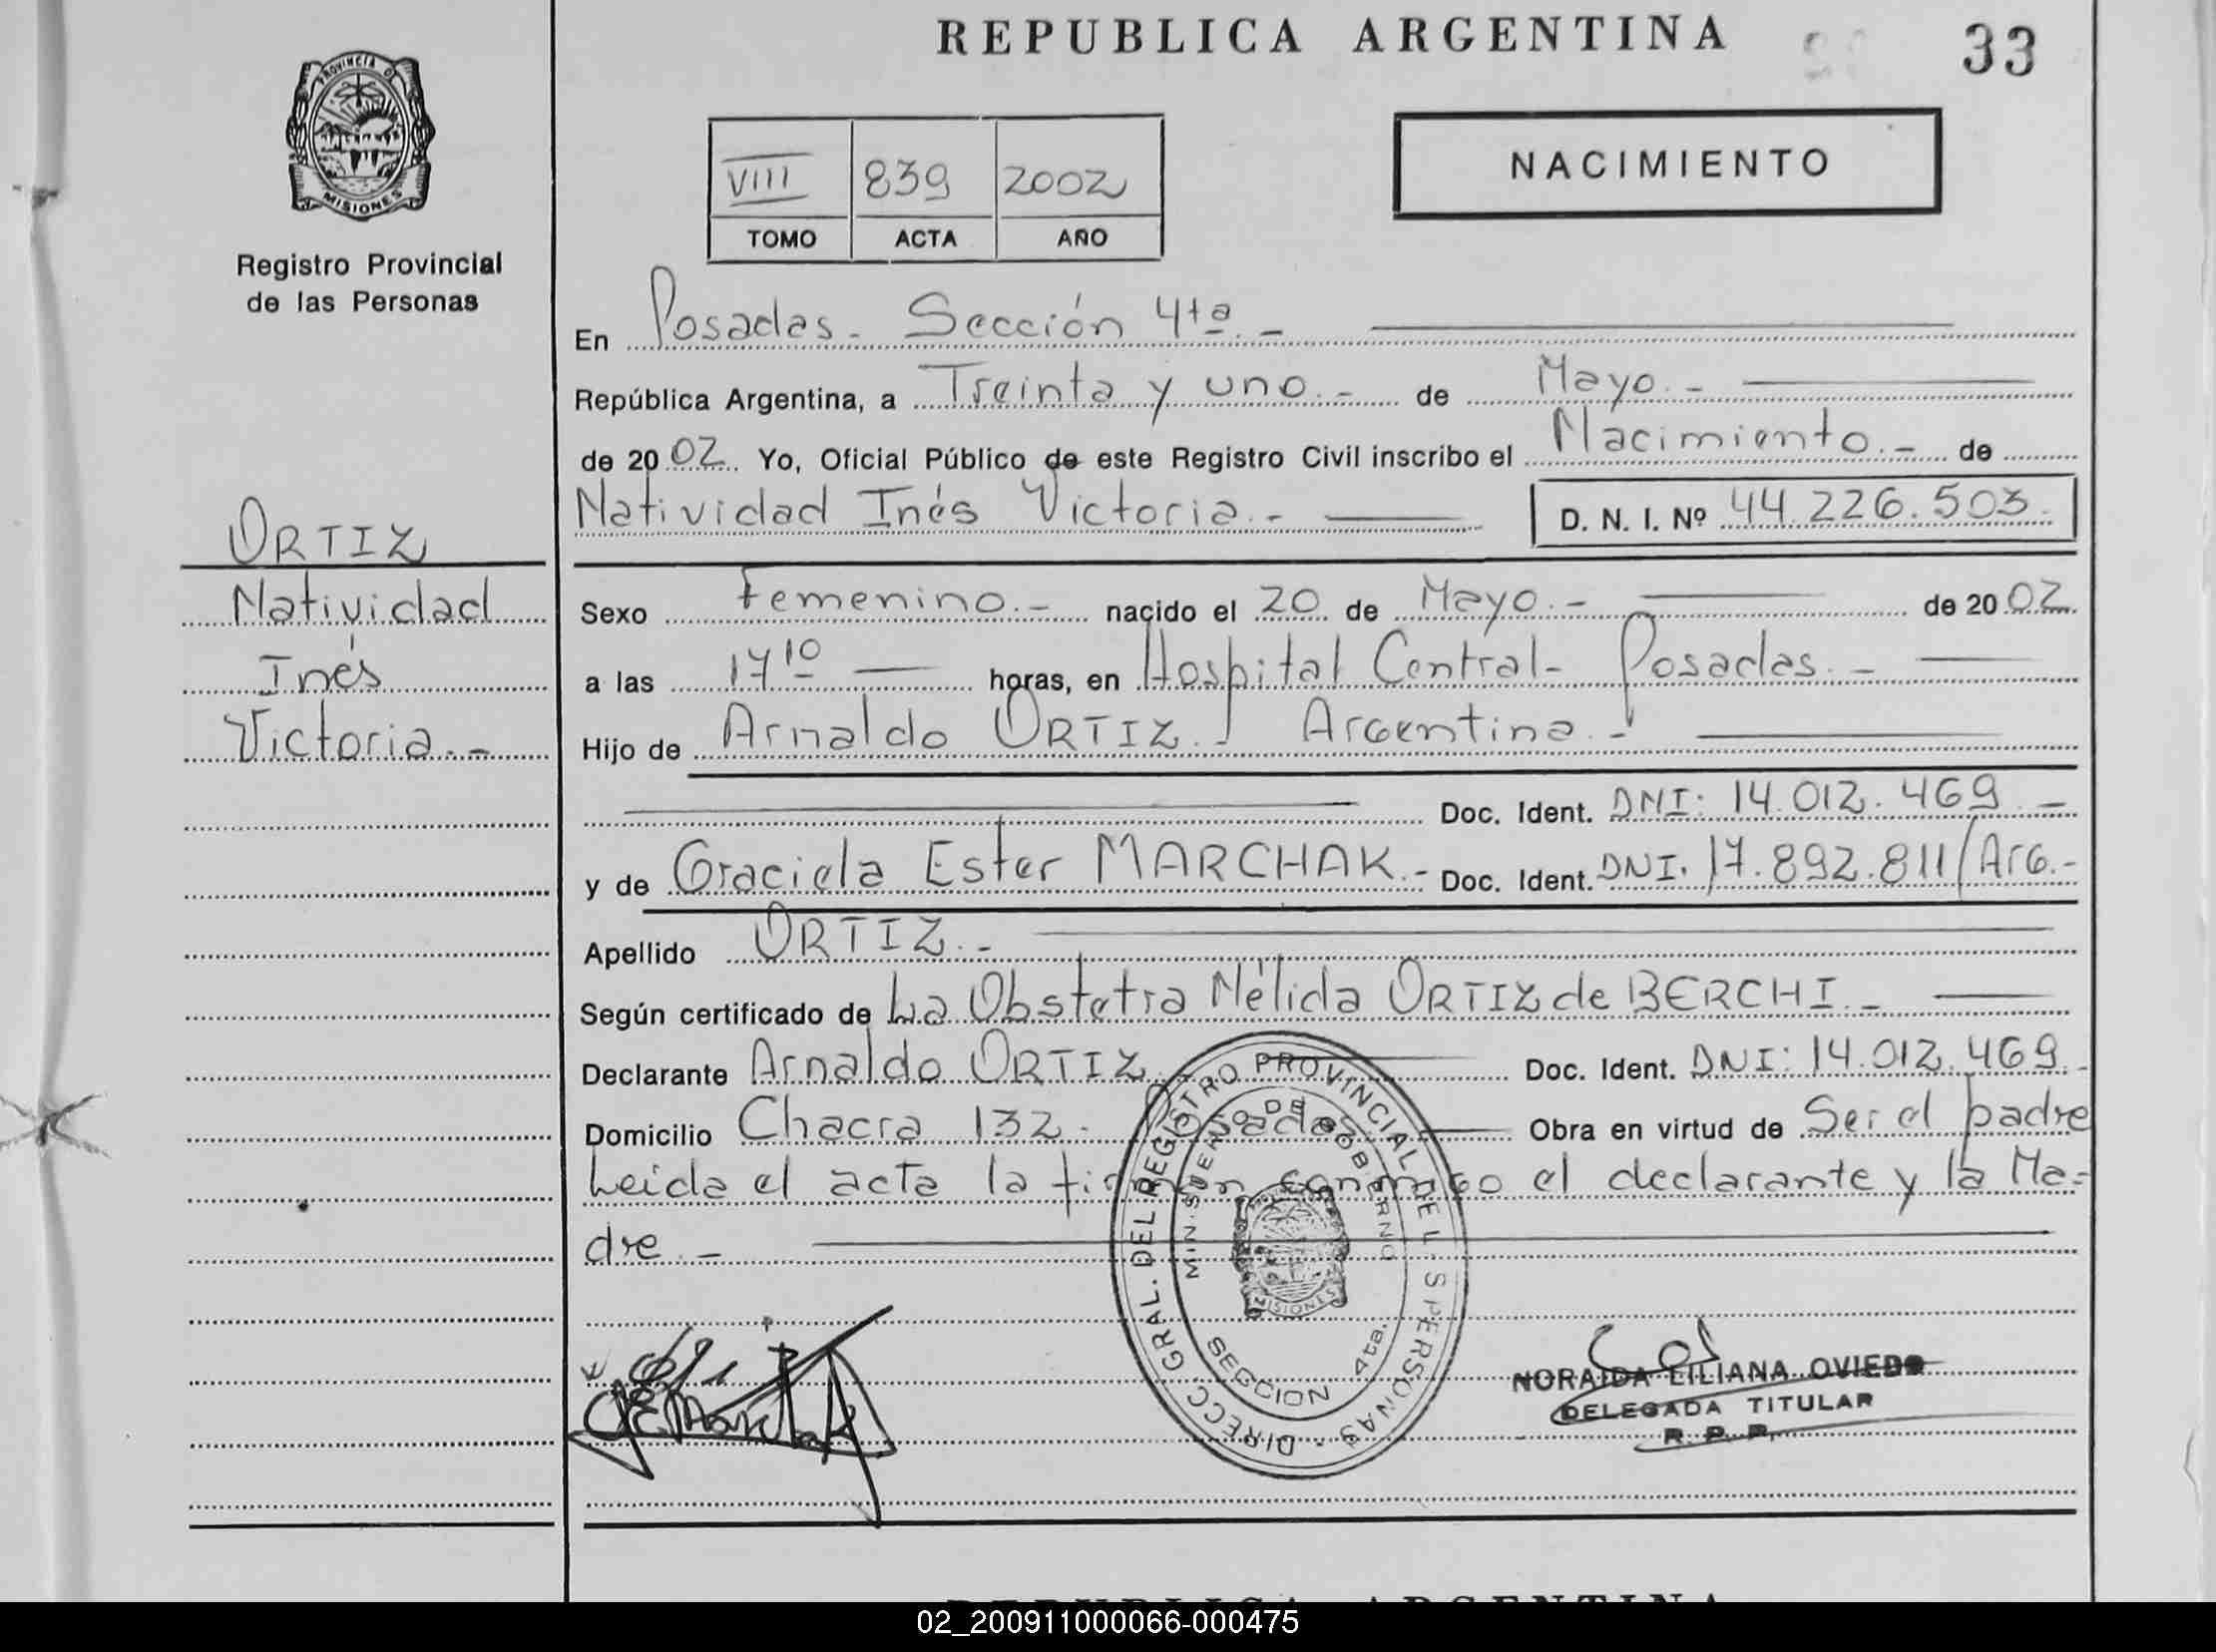 REPUBLICA ARGENTINA
33
PROVINCIA D
MISIONES
Registro Provincial
de las Personas
VIII 839 2002
TOMO ACTA AÑO
NACIMIENTO
En Posadas - Sección 4ta. -
República Argentina, a Treinta y uno. - de Mayo. -
de 2002. Yo, Oficial Público de este Registro Civil inscribo el Nacimiento. - de
Natividad Inés Victoria. - D. N. I. Nº 44.226.503.
ORTIZ
Natividad
Inés
Victoria. -
Sexo Femenino. - nacido el 20 de Mayo. - de 2002.
a las 17 10 horas, en Hospital Central - Posadas. -
Hijo de Arnaldo ORTIZ. - Argentina. -
Doc. Ident. DNI: 14.012.469. -
y de Graciela Ester MARCHAK. - Doc. Ident. DNI. 17.892.811/Arg. -
Apellido ORTIZ. -
Según certificado de La Obstetra Nélida ORTIZ de BERCHI. -
Declarante Arnaldo ORTIZ Doc. Ident. DNI: 14.012.469. -
Domicilio Chacra 132 - Posadas Obra en virtud de Ser el padre
Leida el acta la firman conmigo el declarante y la Ma-
dre. -
DIRECC. GRAL. DEL REGISTRO PROVINCIAL DE L S PERSONAS -
MIN. SU DE GOBIERNO
MISIONES
SECCION 4ta.
NORAIDA LILIANA OVIEDO
DELEGADA TITULAR
R. P. P.
REPUBLICA ARGENTINA
02_200911000066-000475